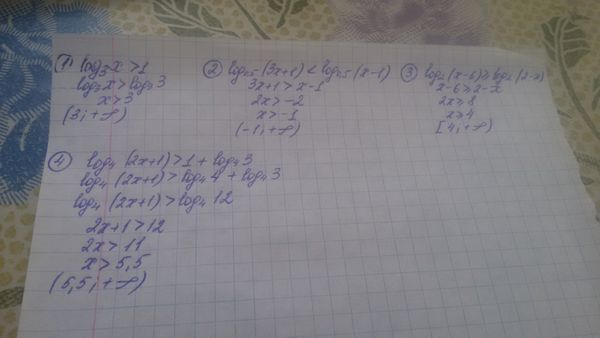 ① log₃x > 1
log₃x > log₃3
x > 3
(3; +∞)
② log₀,₅(3x+1) < log₀,₅(x-1)
3x+1 > x-1
2x > -2
x > -1
(-1; +∞)
③
x-6 ⩾ 2-x
2x ⩾ 8
x ⩾ 4
[4; +∞)
④ log₄(2x+1) > 1 + log₄3
log₄(2x+1) > log₄4 + log₄3
log₄(2x+1) > log₄12
2x+1 > 12
2x > 11
x > 5,5
(5,5; +∞)